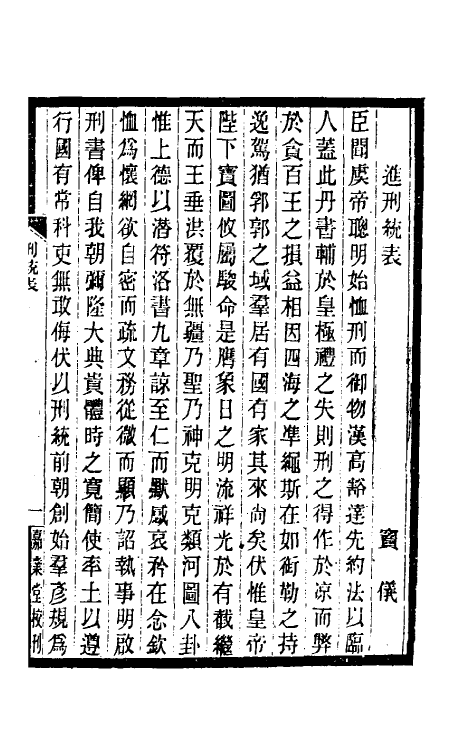 進刑統表　竇儀
臣聞虞帝聰明始恤刑而御物漢高豁達先約法以臨
人蓋此丹書輔於皇極禮之失則刑之得作於涼而弊
於貪百王之損益相因四海之準繩斯在如銜勒之持
逸駕猶郛郭之域羣居有國有家其來尚矣伏惟皇帝
陛下寶圖攸屬駿命是膺象日之明流祥光於有截繼
天而王垂洪覆於無疆乃聖乃神克明克類河圖八卦
惟上德以潛符洛書九章諒至仁而默感哀矜在念欽
恤爲懷網欲自密而疏文務從微而顯乃詔執事明啟
刑書俾自我朝彌隆大典貴體時之寬簡使率土以遵
行國有常科吏無敢侮伏以刑統前朝創始羣彥規爲
刑統表
一
嘉業堂校刊